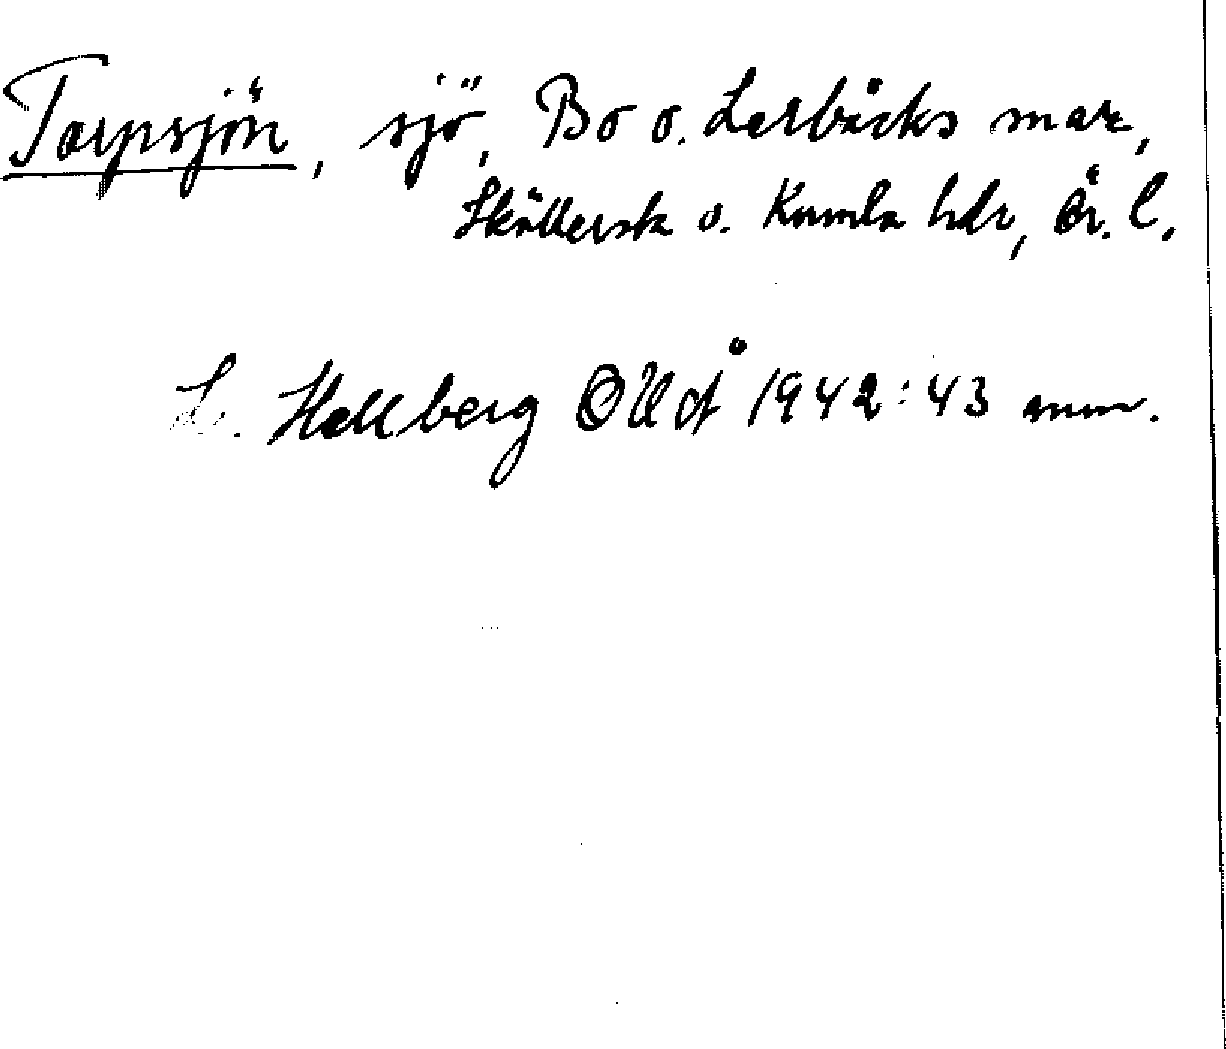 Torpsjön, sjö, Bo o. Lerbäcks snr,
Skyllersta o. Kumla hdr, Ör. l.
L. Hallberg OUÅ 1942:43 mnr.